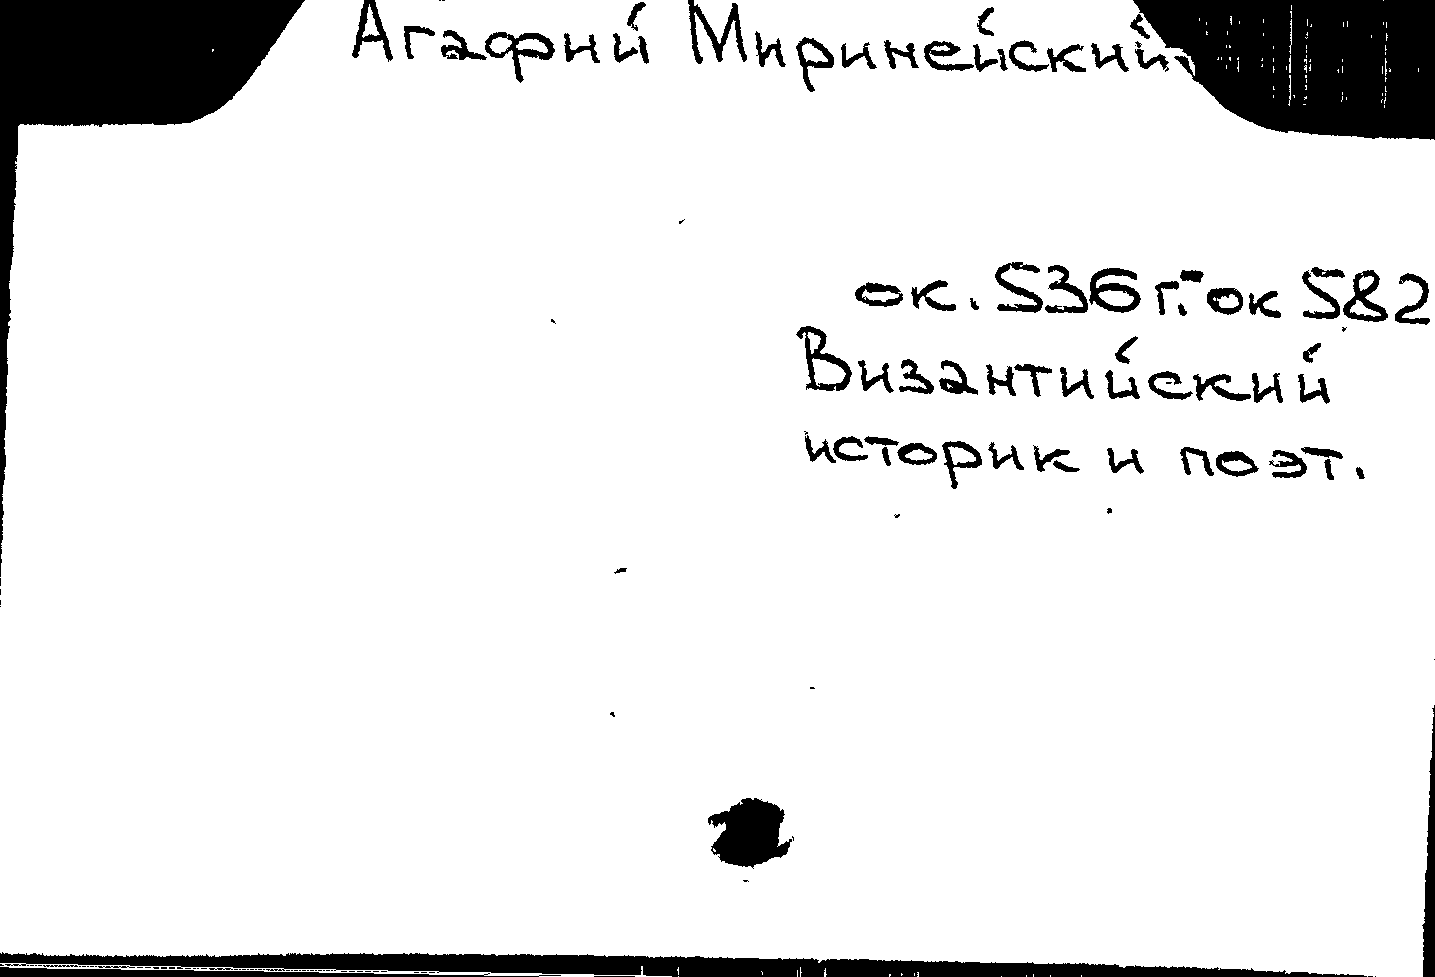 Агафий Миринейский
ок. 536 г.-ок 582
Византийский
историк и поэт.